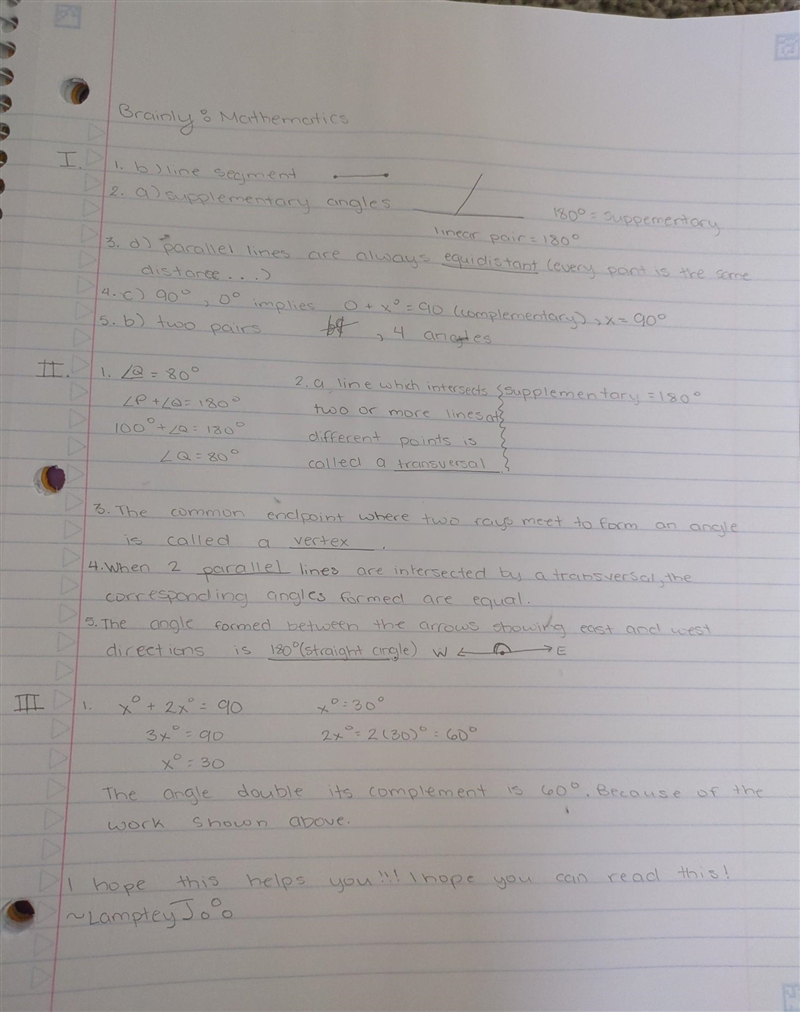 Brainly: Mathematics
I. 1. b) line segment
2. a) supplementary angles
180° = suppementary
linear pair = 180°
3. d) parallel lines are always equidistant (every point is the same
distance...)
4. c) 90°, 0° implies 0 + x° = 90 (complementary), x = 90°
5. b) two pairs , 4 angles
II. 1. ∠Q = 80°
∠P + ∠Q = 180°
100° + ∠Q = 180°
∠Q = 80°
2. a line which intersects {supplementary = 180°
two or more lines at
different points is
called a transversal
3. The common endpoint where two rays meet to form an angle
is called a vertex.
4. When 2 parallel lines are intersected by a transversal, the
corresponding angles formed are equal.
5. The angle formed between the arrows showing east and west
directions is 180° (straight angle) W E
III 1. x° + 2x° = 90 x° = 30°
3x° = 90 2x° = 2(30)° = 60°
x° = 30
The angle double its complement is 60°. Because of the
work shown above.
I hope this helps you!!! I hope you can read this!
~LampteyJ